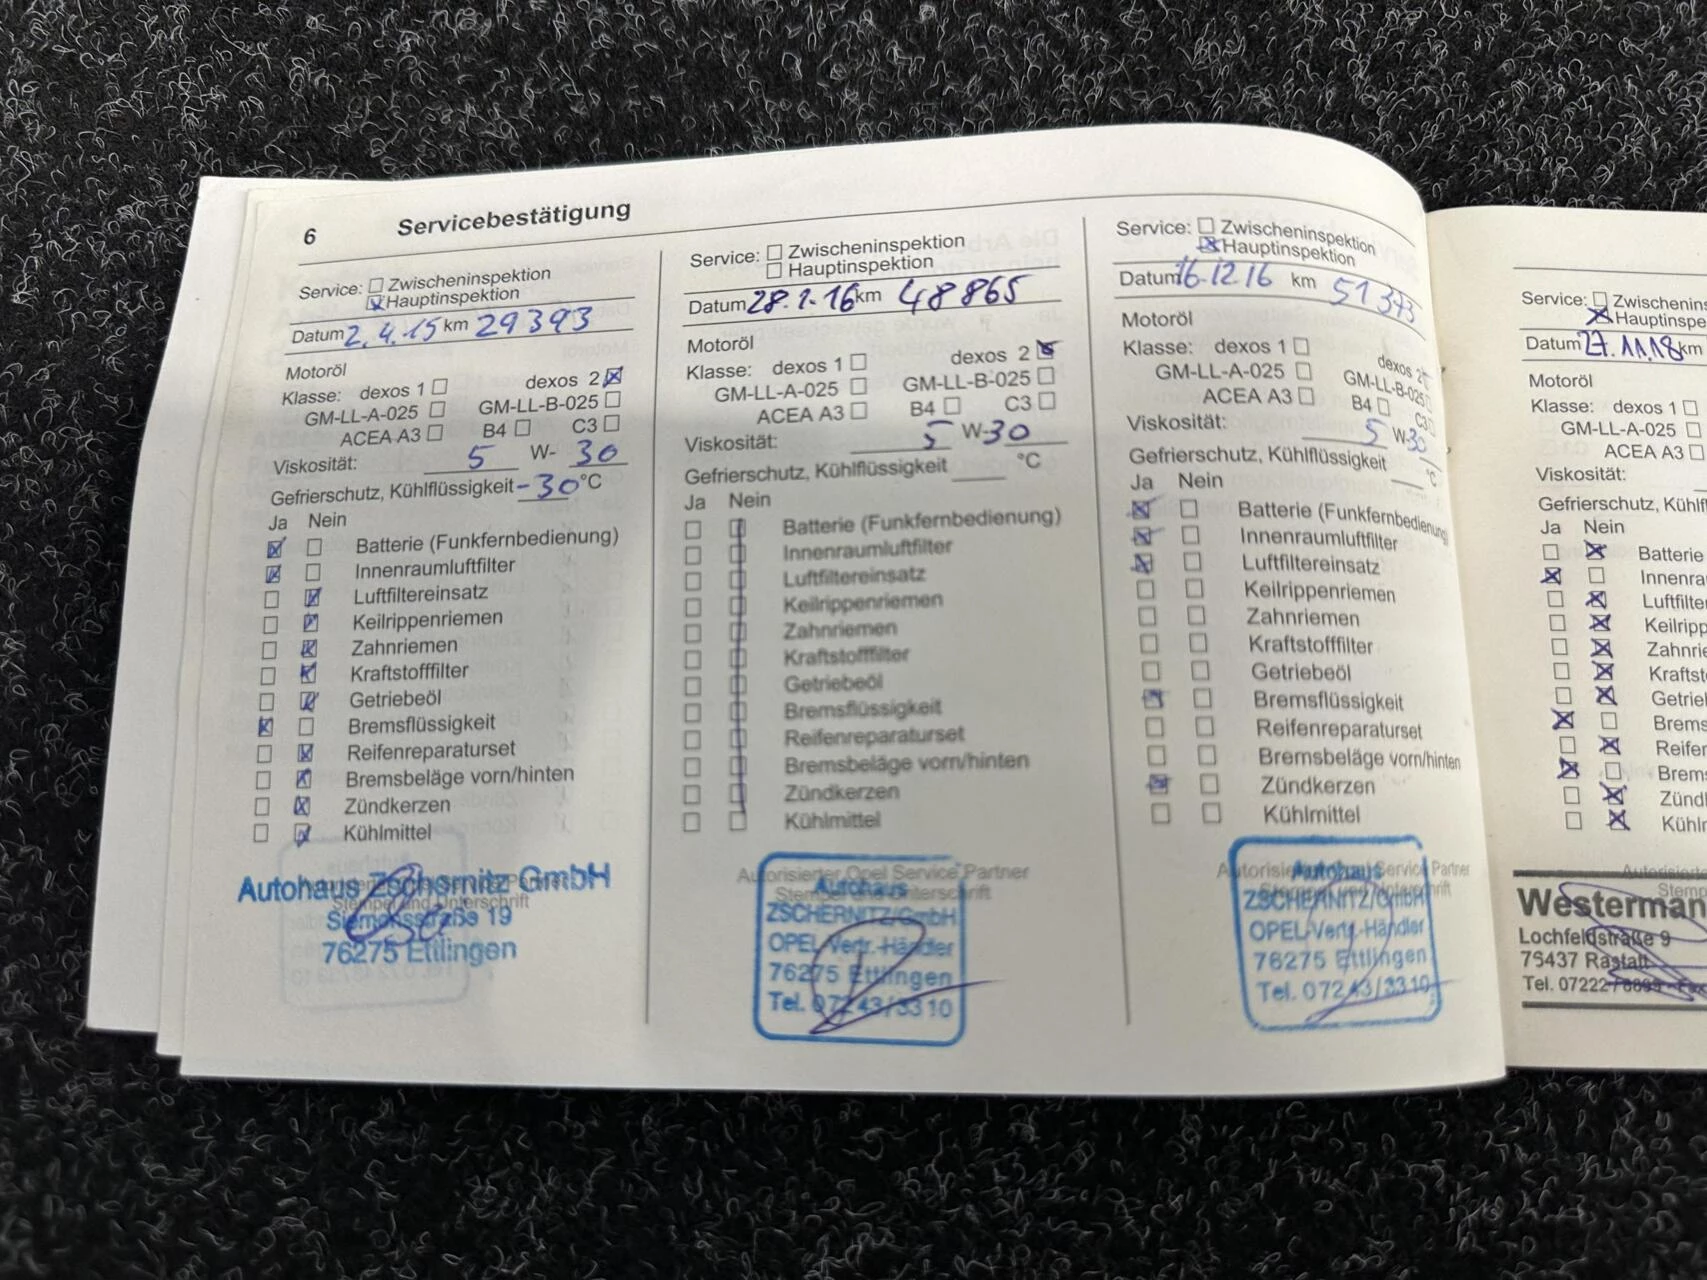 6 Servicebestätigung
Service: Zwischeninspektion
Hauptinspektion
Datum 2.4.15 km 29393
Motoröl
Klasse: dexos 1 dexos 2
GM-LL-A-025 GM-LL-B-025
ACEA A3 B4 C3
Viskosität: 5 W- 30
Gefrierschutz, Kühlflüssigkeit -30 °C
Ja Nein
Batterie (Funkfernbedienung)
Innenraumluftfilter
Luftfiltereinsatz
Keilrippenriemen
Zahnriemen
Kraftstofffilter
Getriebeöl
Bremsflüssigkeit
Reifenreparaturset
Bremsbeläge vorn/hinten
Zündkerzen
Kühlmittel
Autohaus Zschernitz GmbH
Stempel und Unterschrift
Siemensstraße 19
76275 Ettlingen
Service: Zwischeninspektion
Hauptinspektion
Datum 28.1.16 km 48865
Motoröl
Klasse: dexos 1 dexos 2
GM-LL-A-025 GM-LL-B-025
ACEA A3 B4 C3
Viskosität: 5 W-30
Gefrierschutz, Kühlflüssigkeit °C
Ja Nein
Batterie (Funkfernbedienung)
Innenraumluftfilter
Luftfiltereinsatz
Keilrippenriemen
Zahnriemen
Kraftstofffilter
Getriebeöl
Bremsflüssigkeit
Reifenreparaturset
Bremsbeläge vorn/hinten
Zündkerzen
Kühlmittel
Autorisierter Opel Service Partner
Stempel und Unterschrift
Autohaus
ZSCHERNITZ GmbH
OPEL-Vertr.-Händler
76275 Ettlingen
Tel. 07243/3310
Service: Zwischeninspektion
Hauptinspektion
Datum 16.12.16 km 51373
Motoröl
Klasse: dexos 1 dexos 2
GM-LL-A-025 GM-LL-B-025
ACEA A3 B4 C3
Viskosität: 5 W-30
Gefrierschutz, Kühlflüssigkeit °C
Ja Nein
Batterie (Funkfernbedienung)
Innenraumluftfilter
Luftfiltereinsatz
Keilrippenriemen
Zahnriemen
Kraftstofffilter
Getriebeöl
Bremsflüssigkeit
Reifenreparaturset
Bremsbeläge vorn/hinten
Zündkerzen
Kühlmittel
Service Partner
Autohaus
ZSCHERNITZ GmbH
OPEL-Vertr.-Händler
76275 Ettlingen
Tel. 07243/3310
Service: Zwischenins
Hauptinspe
Datum 27.11.18 km
Motoröl
Klasse: dexos 1
GM-LL-A-025
ACEA A3
Viskosität:
Gefrierschutz, Kühlfl
Ja Nein
Batterie
Innenra
Luftfilter
Keilripp
Zahnrie
Kraftst
Getrie
Brems
Reifer
Brems
Zünd
Kühln
Westerman
Lochfeldstraße 9
75437 Rastatt
Tel. 07222